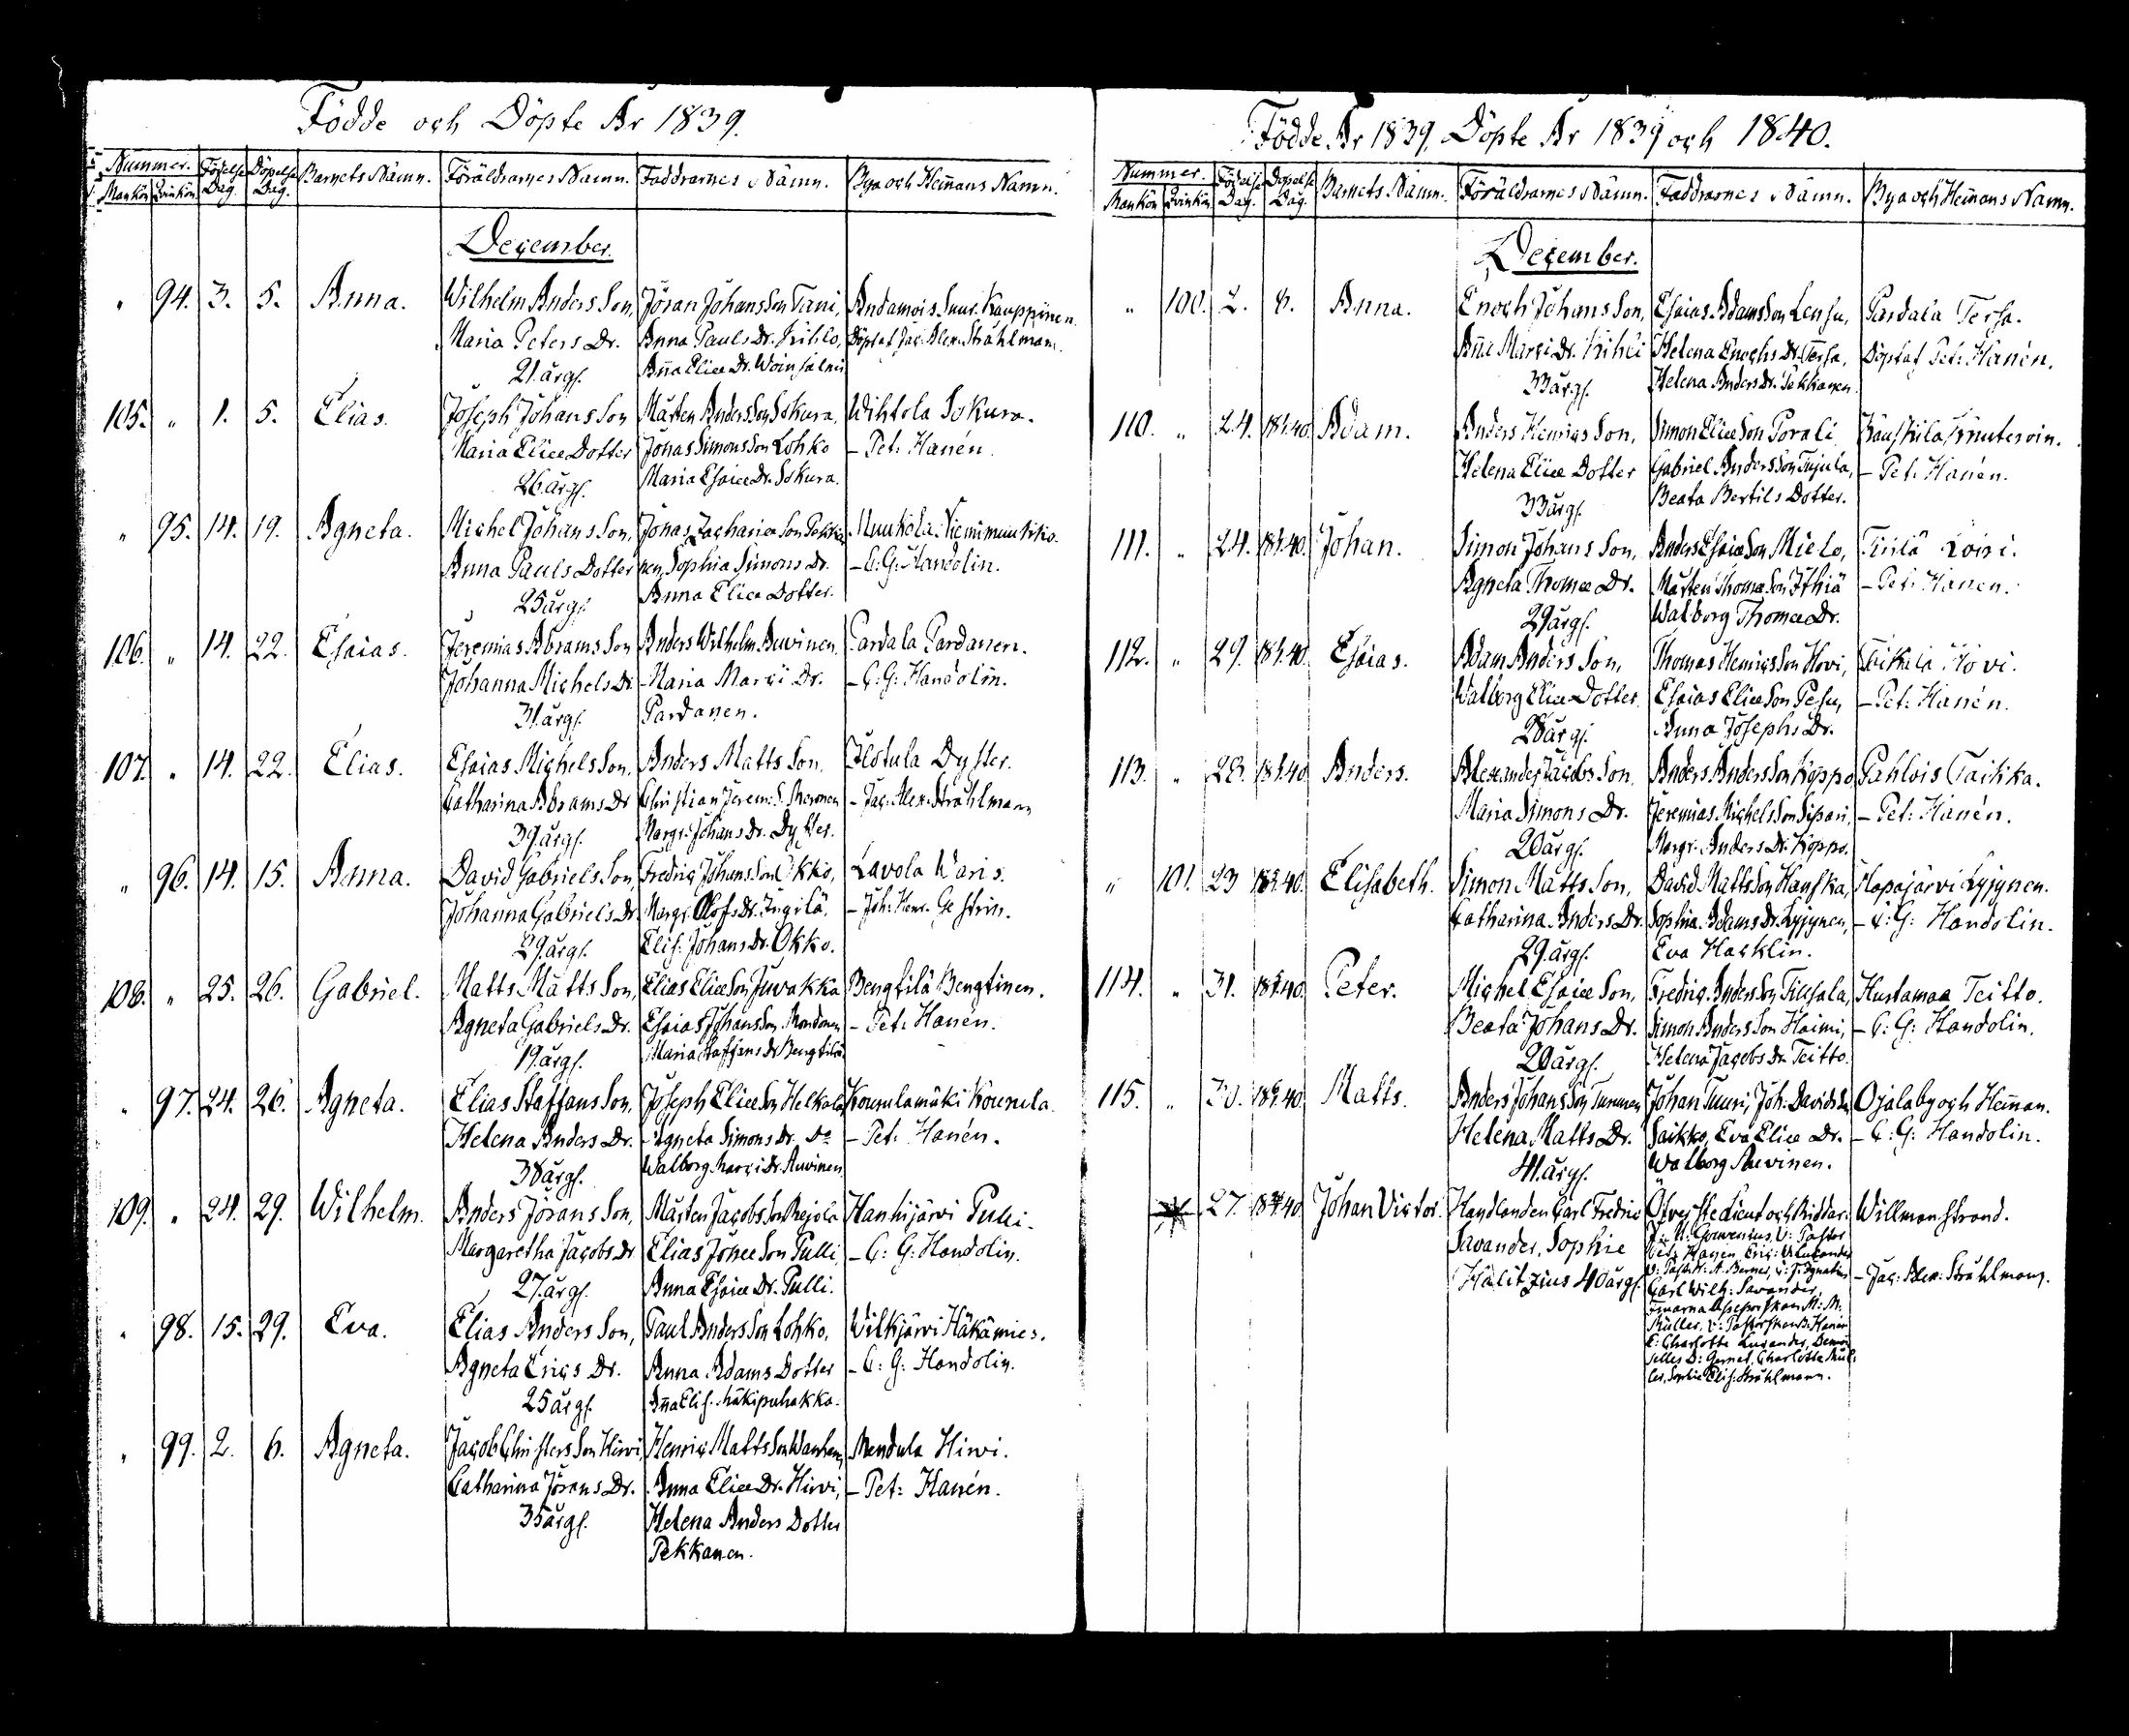 Födde och Döpte År 1839.
Nummer. Födelse Dag. Döpelse Dag. Barnets Namn. Föräldrarnes Namn. Faddrarnes Namn. Bya och Hem̄ans Namn.
Mankön Qvinkön
December.
" 94. 3. 5. Anna. Wilhelm Anders Son, Jöran Johans Son Tani, Andamois Kauppinen.
Maria Peters Dr. Anna Pauls Dr. Döpt af Jac: Alex: Stråhlman.
21. årgs. An̄a Eliæ Dr.
105. " 1. 5. Elias. Joseph Johans Son Mårten Anders Son Sokura, Wihtola Sokura.
Maria Eliæ Dotter Jonas Simons Son Lohko – Pet: Hanén.
26. årgs. Maria Esaiæ Dr. Sokura.
" 95. 14. 19. Agneta. Michel Johans Son, Jonas Zachariæ Son Pekka Munkola Nemimunkko.
Anna Pauls Dotter nen, Sophia Simons Dr. – C: G: Handolin.
25 årgs. Anna Eliæ Dotter.
106. " 14. 22. Esaias. Jeremias Abrams Son Anders Wilhelm Auvinen, Pardala Pardanen.
Johanna Michels Dr. Maria Marci Dr. – C: G: Handolin.
31. årgs. Pardanen.
107. " 14. 22. Elias. Esaias Michels Son, Anders Matts Son, Ilotula Dyster.
Catharina Abrams Dr Christian Jerem: S. Meronen – Jac: Alex: Stråhlman
39. årgs. Margr: Johans Dr. Dyster.
" 96. 14. 15. Anna. David Gabriels Son, Fredric Johans Son Okko, Lavola Waris.
Johanna Gabriels Dr Margr: Olofs Dr. Ingilä. – Joh: Henr:
29. årgs. Elis: Johans Dr. Okko.
108. " 25. 26. Gabriel. Matts Matts Son, Elias Eliæ Son Juvakka Bengtilä Bengtinen.
Agneta Gabriels Dr. Esaias Johans Son – Pet: Hanén.
19. årgs. Maria Staffans Dr Bengtilä
" 97. 24. 26. Agneta. Elias Staffans Son, Joseph Eliæ Son Helkala Kounulamäki Kounula.
Helena Anders Dr. Agneta Simons Dr. Do – Pet: Hanén.
38 årgs. Walborg Marci Dr. Auvinen
109. " 24. 29. Wilhelm. Anders Jörans Son, Mårten Jacobs Son Reijola Hanhijärvi Pulli.
Margaretha Jacobs Dr Elias Jonæ Son Pulli, – C: G: Handolin.
27. årgs. Anna Esaiæ Dr. Pulli.
" 98. 15. 29. Eva. Elias Anders Son, Paul Anders Son Lohko, Wilkjärvi Häkämies.
Agneta Erics Dr. Anna Adams Dotter – C: G: Handolin.
25 årgs. An̄a Elis. Mäkipuhakka.
" 99. 2. 6. Agneta. Jacob Christers Son Hirvi, Henric Matts Son Mendula Hirvi.
Catharina Jörans Dr. Anna Eliæ Dr. Hirvi, – Pet: Hanén.
35 årgs. Helena Anders Dotter
Pekkanen.
Födde År 1839, Döpte År 1839 och 1840.
Nummer. Födelse Dag. Döpelse Dag. Barnets Namn. Föräldrarnes Namn. Faddrarnes Namn. Bya och Hem̄ans Namn.
Mankön Qvinkön
December.
" 100. 2. 8. Anna. Enoch Johans Son, Esaias Adams Son Lensu, Pardala Tersa.
An̄a Marci Dr. Kihli Helena Enochs Dr. Tersa, Döpt af Pet: Hanén.
33 årgs. Helena Anders Dr. Pekkanen
110. " 24. 1840 Adam. Anders Henrics Son, Simon Eliæ Son Porali
Helena Eliæ Dotter Gabriel Anders Son Tujula, – Pet: Hanén.
33 årgs. Beata Bertils Dotter.
111. " 24. 1840. Johan. Simon Johans Son, Anders Esaiæ Son Mielo,
Agneta Thomæ Dr. Mårten Thomæ Son – Pet: Hanén.
29 årgs. Walborg Thomæ Dr.
112. " 29. 1840. Esaias. Adam Anders Son, Thomas Henrics Son Hovi, Hovi.
Walborg Eliæ Dotter. Esaias Eliæ Son Pesu, – Pet: Hanén.
28 årgs. Anna Josephs Dr.
113. " 28. 1840 Anders. Alexander Jacobs Son, Anders Anders Son Koppo, Pahlois Taikka.
Maria Simons Dr. Jeremias Michels Son Sipari, – Pet: Hanén.
28 årgs. Margr: Anders Dr. Koppo.
" 101. 23 1840. Elisabeth. Simon Matts Son, David Matts Son Hanska, Hapajärvi Kyjynen.
Catharina Anders Dr. Sophia Adams Dr. Kyjynen, – C: G: Handolin.
29 årgs. Eva Hacklin.
114. " 31. 1840. Peter. Michel Esaiæ Son, Fredric Anders Son Tiusala, Hurtamaa Teitto.
Beata Johans Dr. Simon Anders Son Haimi, – C: G: Handolin.
28 årgs. Helena Jacobs Dr. Teitto.
115. " 30. 1840. Matts. Anders Johans Son Tummen Johan Tuuri, Joh: Davids S. Ojala by och Hem̄an.
Helena Matts Dr. Saikko, Eva Eliæ Dr. – C: G: Handolin.
41. årgs. Walborg Auvinen.
27. 1840 Johan Victor. Handlanden Carl Fredric Öfverste Lieut och Riddar: Willmanstrand.
Savander, Sophie V: Pastor
Pet: Hanén, Eric:
Halitzius 40 årgs. – Jac: Alex: Stråhlman.
Carl Wilh: Savander,
M: M:
Müller, V: Hanén
C: Charlotte Lucander, Demoi
selles D: Gernet, Charlotte Mül-
ler, Sophie Elis: Stråhlmann.